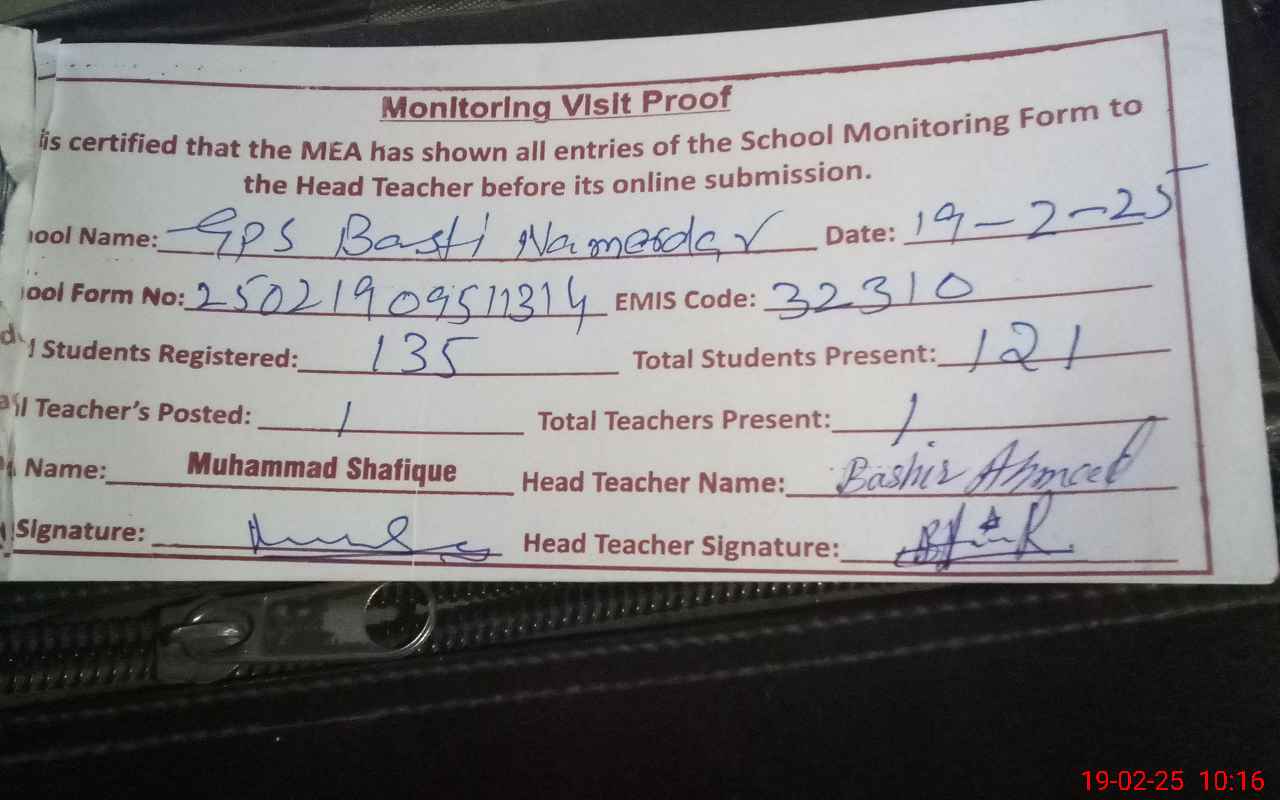 Monitoring Visit Proof
is certified that the MEA has shown all entries of the School Monitoring Form to
the Head Teacher before its online submission.
ool Name: GPS Basti Namerdar Date: 19-2-25
ool Form No: 25021909511314 EMIS Code: 32310
Students Registered: 135 Total Students Present: 121
l Teacher's Posted: 1 Total Teachers Present: 1
Name: Muhammad Shafique Head Teacher Name: Bashir Ahmed
Signature: Head Teacher Signature:
19-02-25 10:16